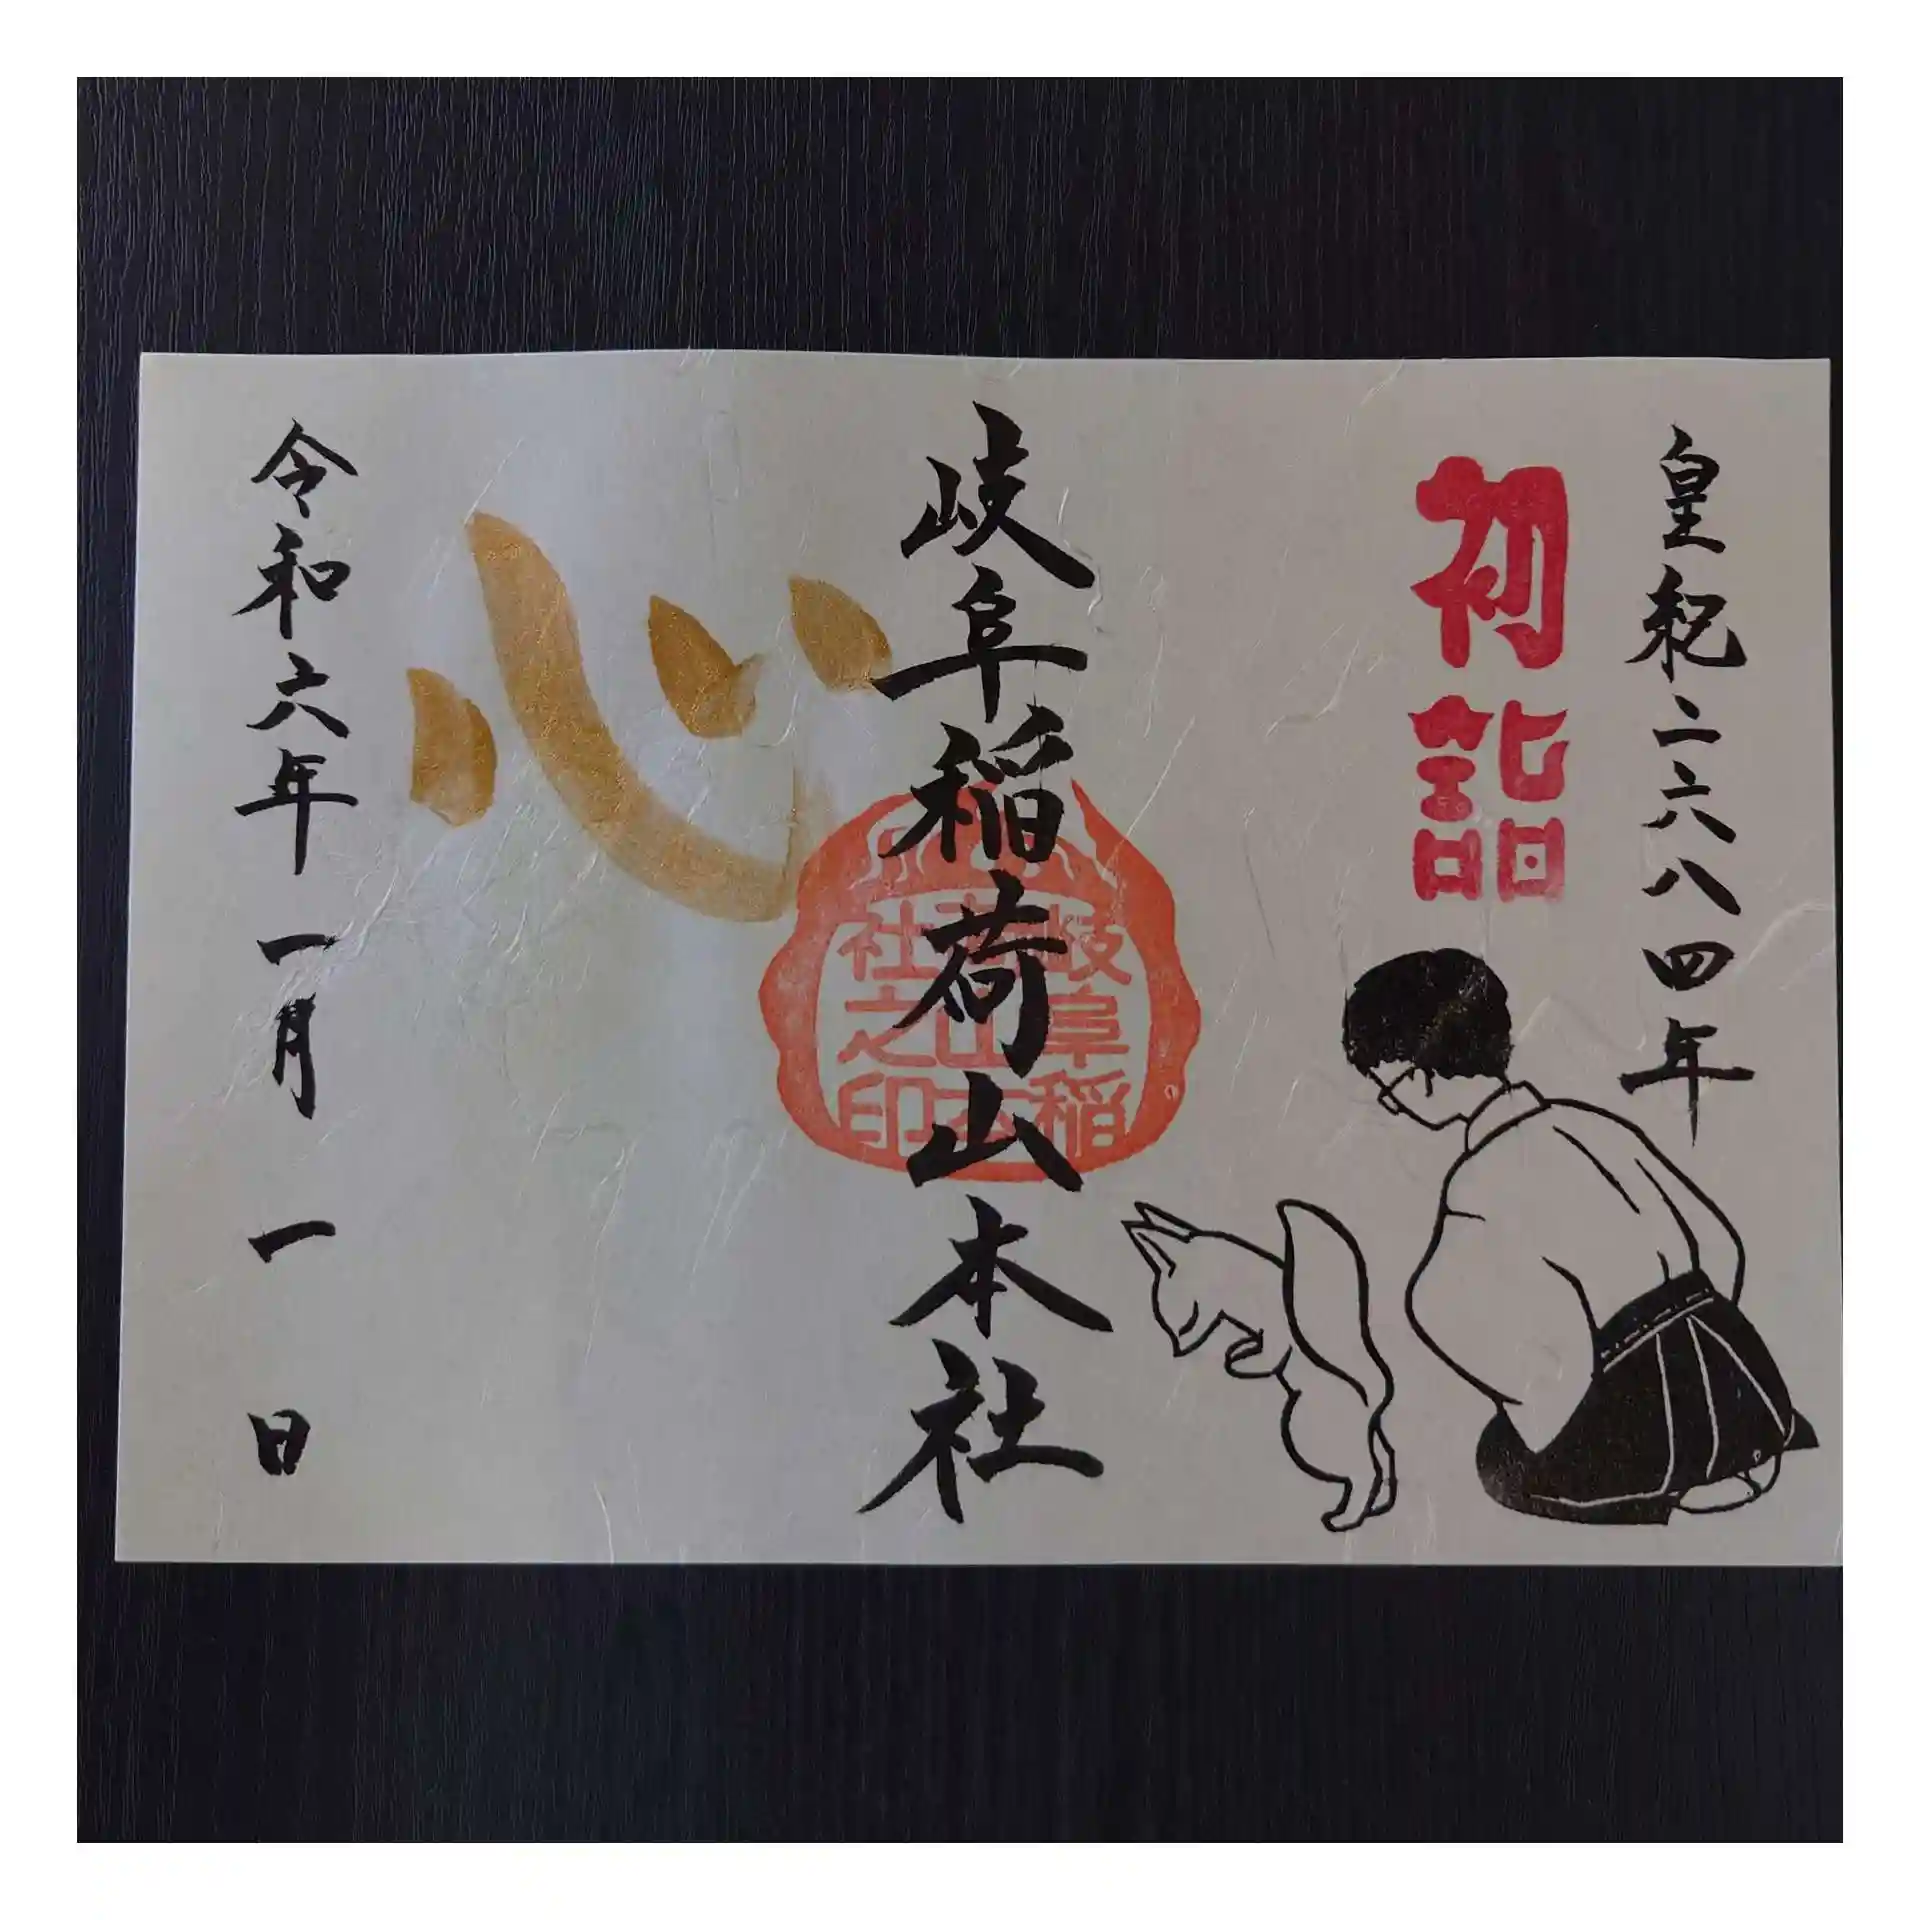 皇紀二六八四年
初詣
岐阜稲荷山本社
岐阜稲
荷山本
社之印
心
令和六年 一月 一日